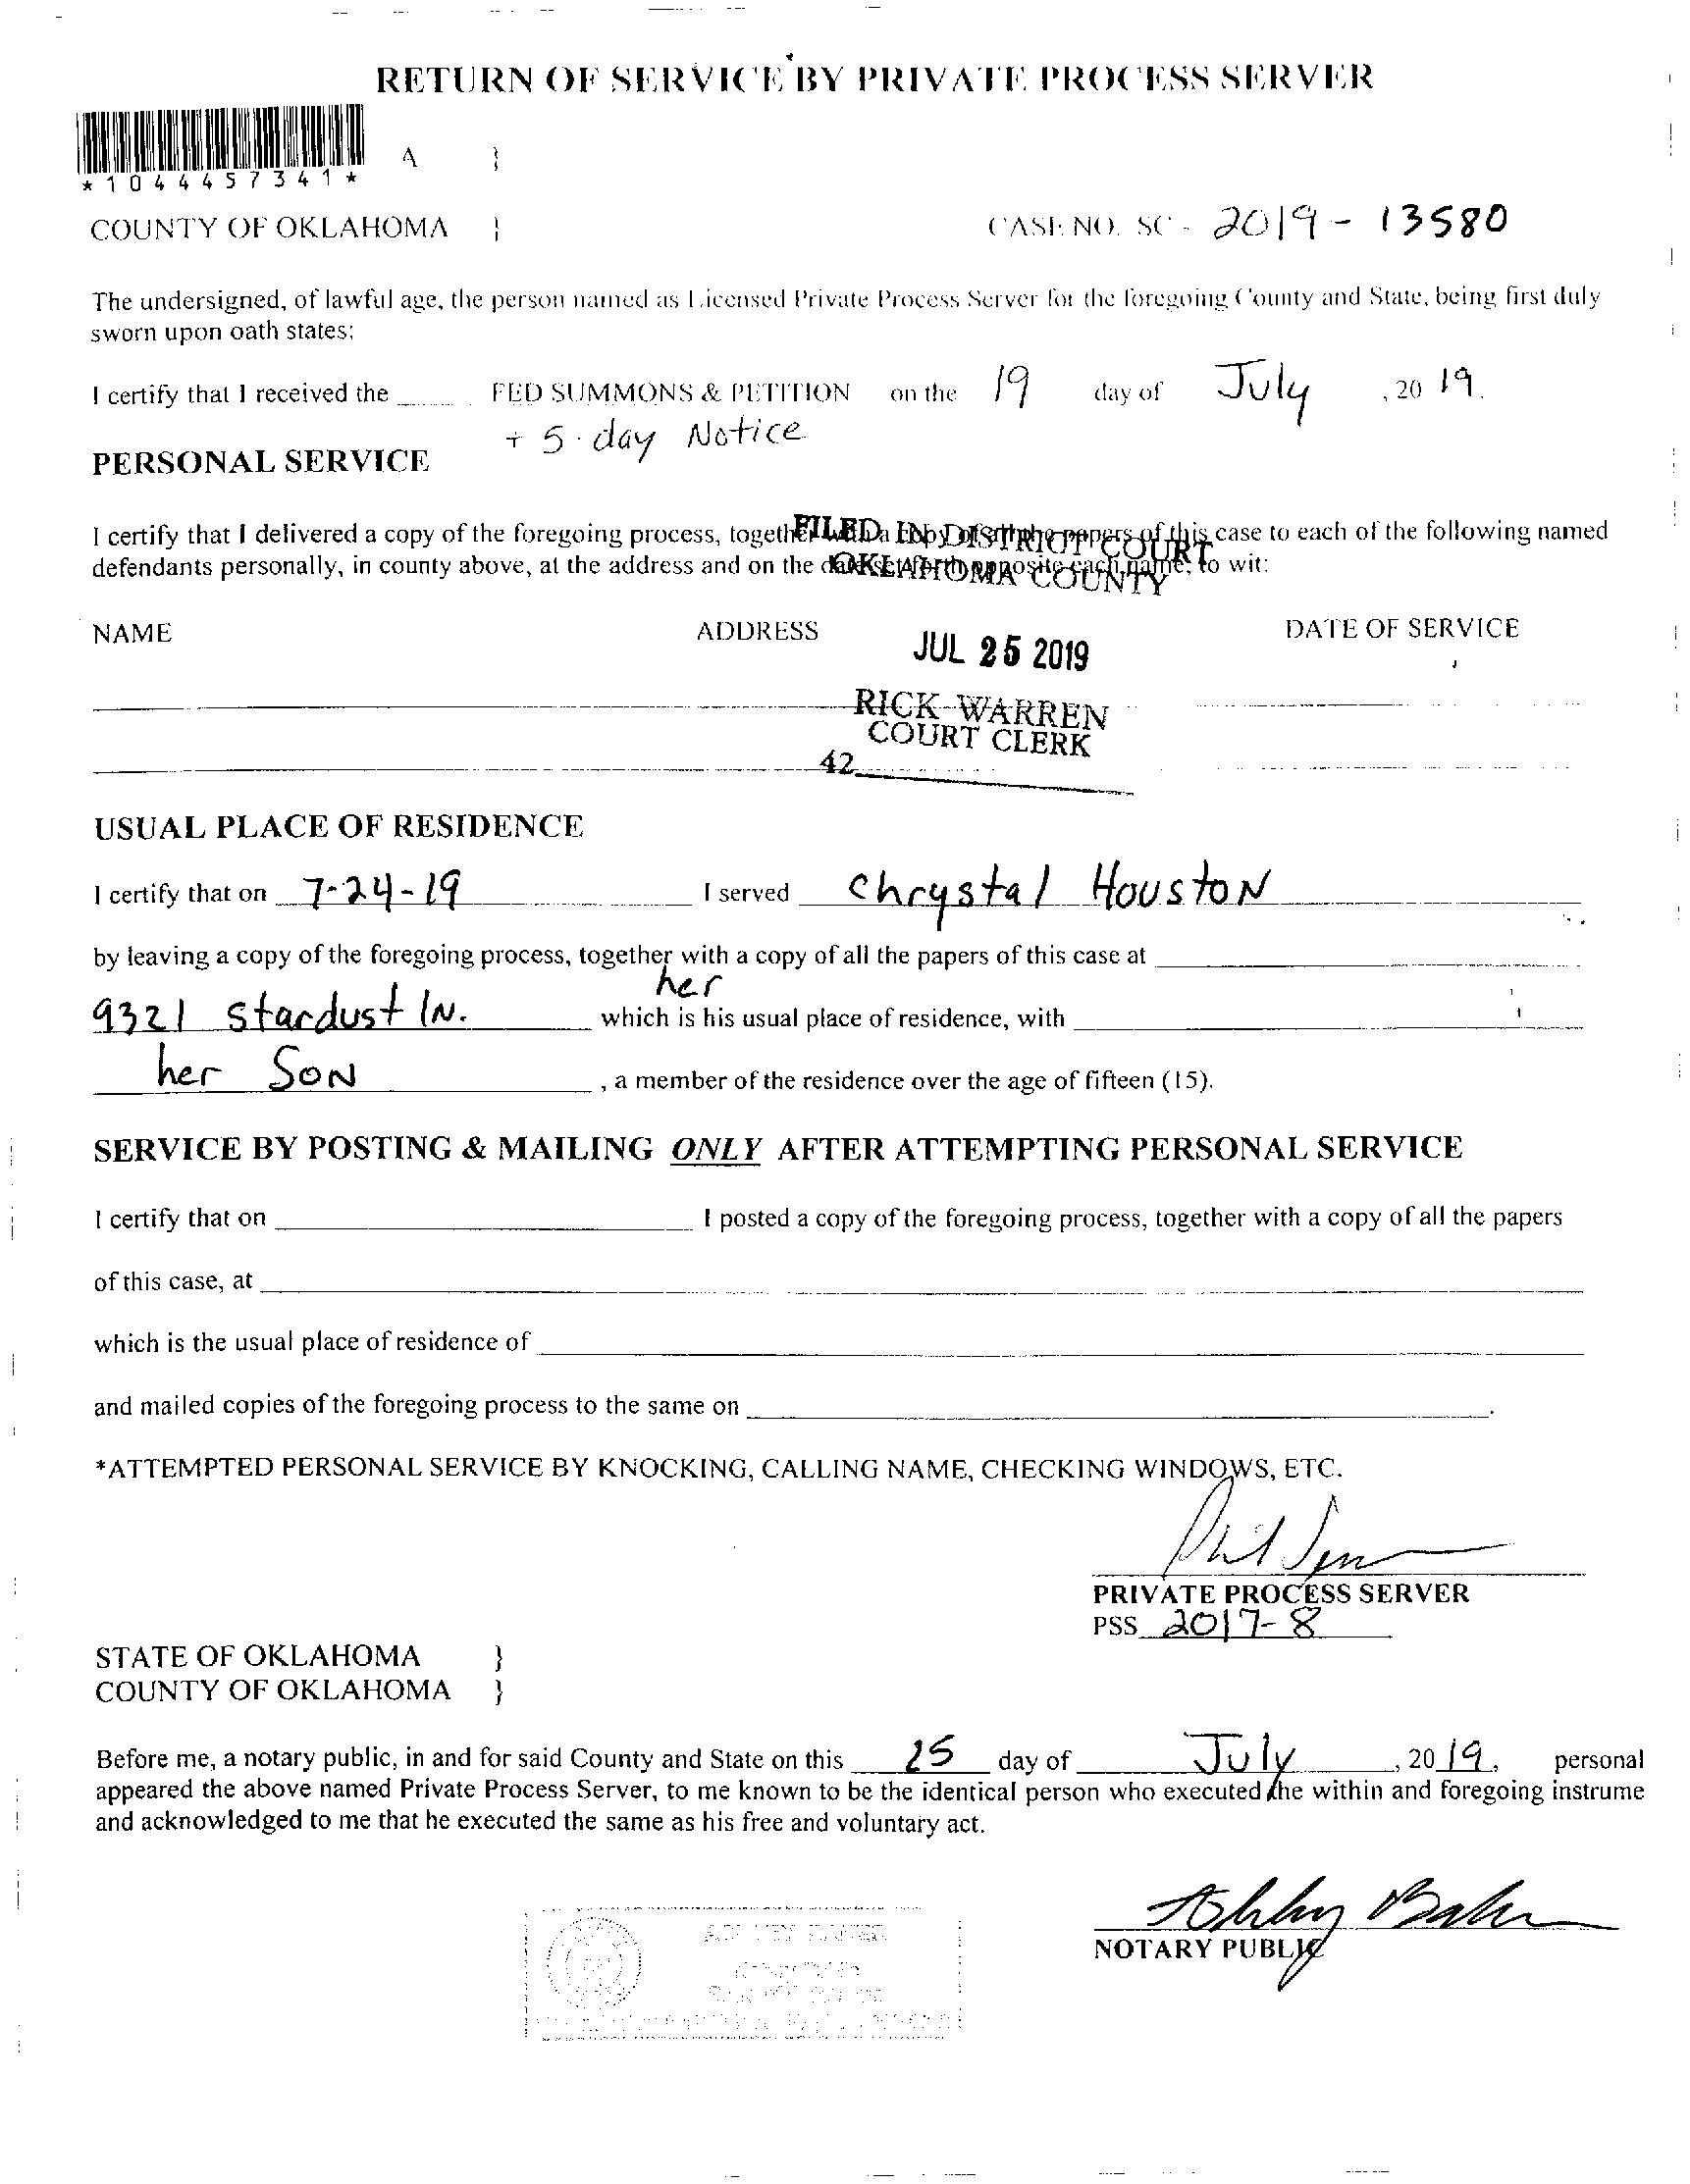 RETURN OF SERVICE BY PRIVATE PROCESS SERVER
A }
*1044457341*
COUNTY OF OKLAHOMA } CASE NO. SC - 2019 - 13580
The undersigned, of lawful age, the person named as Licensed Private Process Server for the foregoing County and State, being first duly
sworn upon oath states;
I certify that I received the FED SUMMONS & PETITION on the 19 day of July , 20 19.
+ 5 day Notice
PERSONAL SERVICE
I certify that I delivered a copy of the foregoing process, together with a copy of all the papers of this case to each of the following named
FILED IN DISTRICT COURT
defendants personally, in county above, at the address and on the date set forth opposite each name; to wit:
OKLAHOMA COUNTY
NAME ADDRESS DATE OF SERVICE
JUL 25 2019
RICK WARREN
COURT CLERK
42
USUAL PLACE OF RESIDENCE
I certify that on 7-24-19 I served Chrystal Houston
by leaving a copy of the foregoing process, together with a copy of all the papers of this case at
her
9321 Stardust ln. which is his usual place of residence, with
her Son , a member of the residence over the age of fifteen (15).
SERVICE BY POSTING & MAILING ONLY AFTER ATTEMPTING PERSONAL SERVICE
I certify that on I posted a copy of the foregoing process, together with a copy of all the papers
of this case, at
which is the usual place of residence of
and mailed copies of the foregoing process to the same on .
*ATTEMPTED PERSONAL SERVICE BY KNOCKING, CALLING NAME, CHECKING WINDOWS, ETC.
PRIVATE PROCESS SERVER
PSS 2017-8
STATE OF OKLAHOMA }
COUNTY OF OKLAHOMA }
Before me, a notary public, in and for said County and State on this 25 day of July , 20 19, personal
appeared the above named Private Process Server, to me known to be the identical person who executed the within and foregoing instrume
and acknowledged to me that he executed the same as his free and voluntary act.
NOTARY PUBLIC